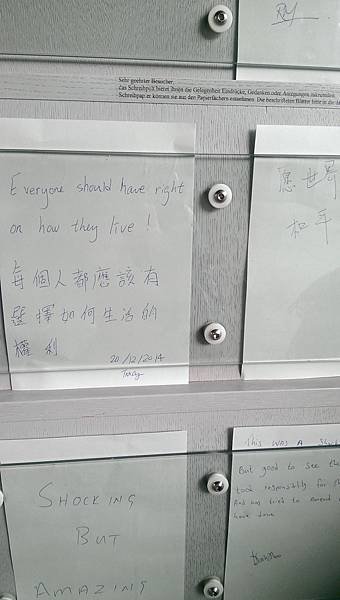 Sehr geehrter Besucher,
das Schreibpult bietet Ihnen die Gelegenheit Eindrücke, Gedanken oder Anregungen
Schreibpapier können sie aus den Papierfächern entnehmen. Die beschrifteten Blätter bitte in die
Everyone should have right
on how they live !
每個人都應該有
選擇如何生活的
權利
20/12/2014
Tracy
愿世界
和平
SHOCKING
BUT
AMAZING
This was a
But good to see the
took responsibility for
And
tried to
have done